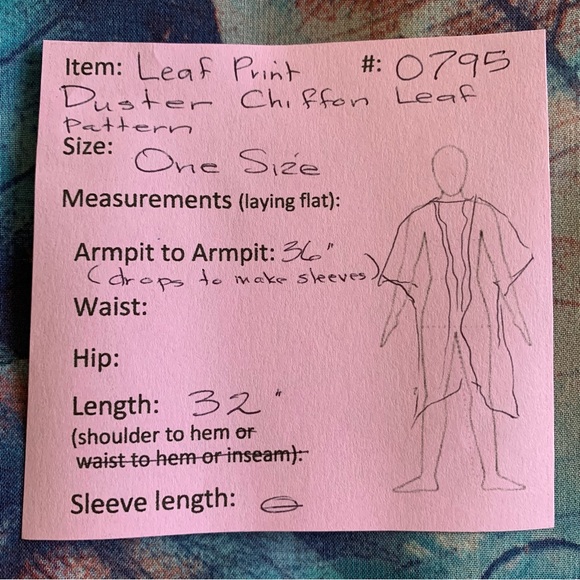 Item: Leaf Print #: 0795
Duster Chiffon Leaf
Pattern
Size: One Size
Measurements (laying flat):
Armpit to Armpit: 36"
(drops to make sleeves)
Waist:
Hip:
Length: 32"
(shoulder to hem or
waist to hem or inseam):
Sleeve length: